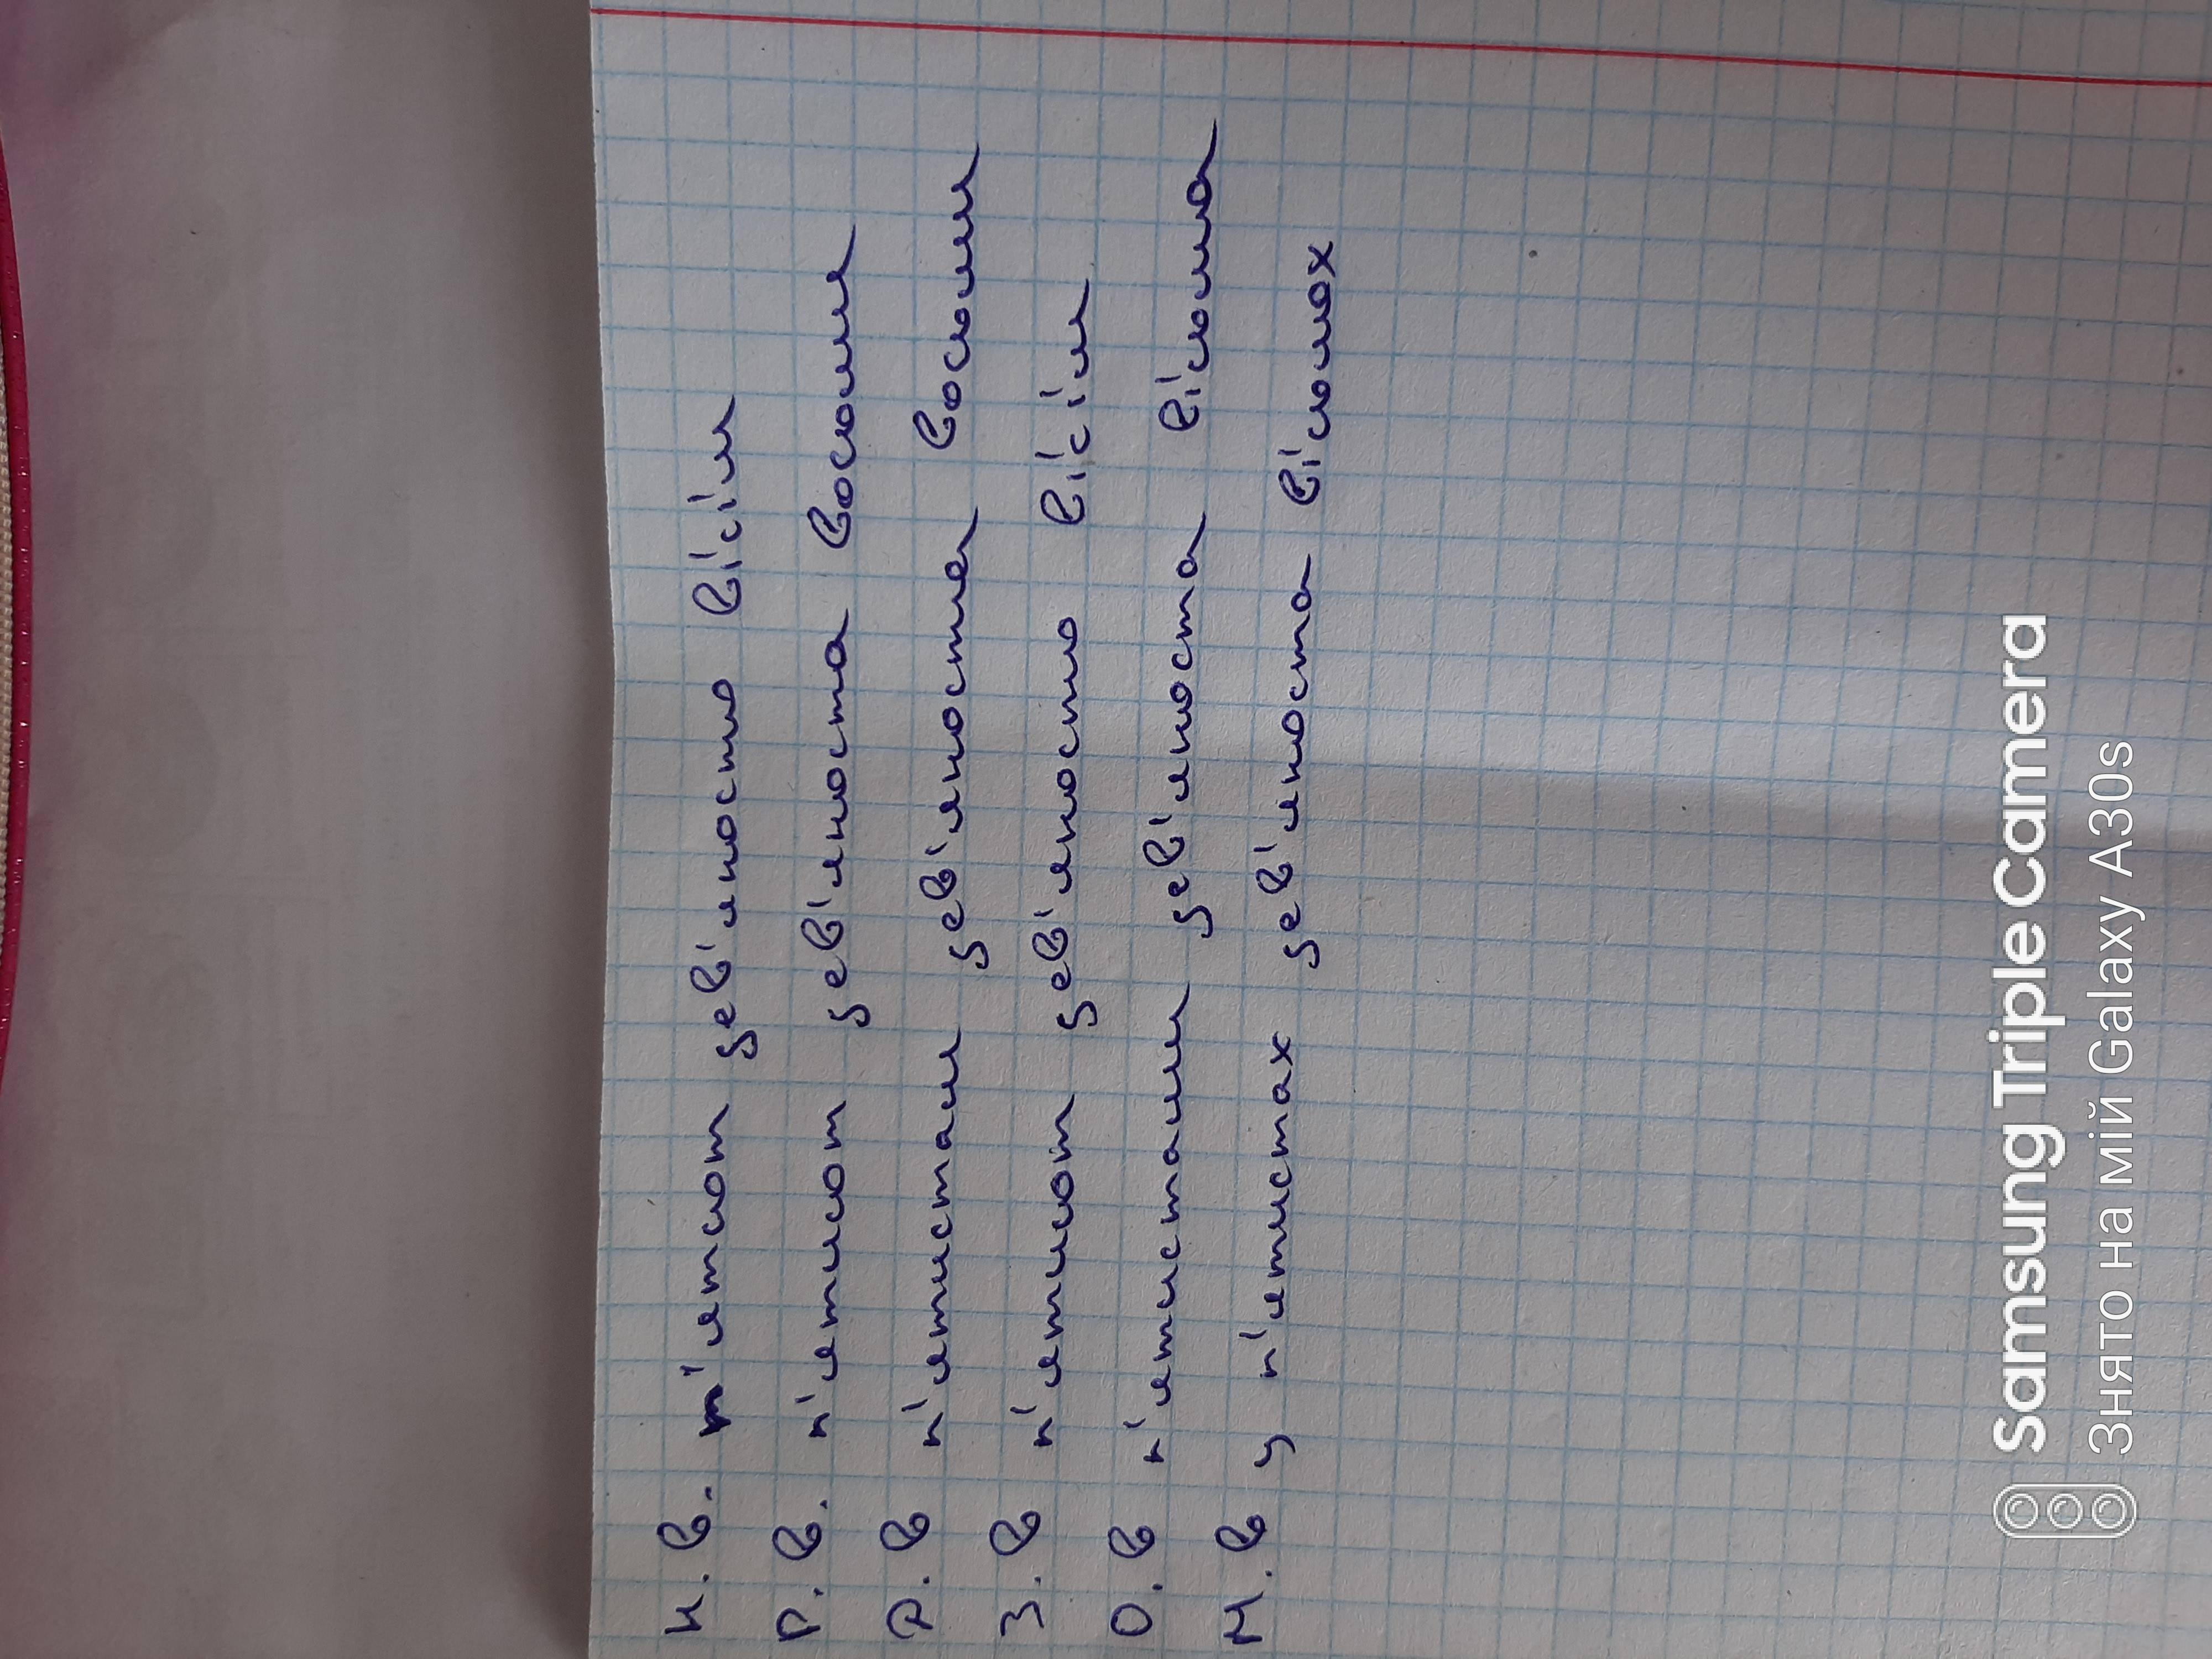 Н.в. п'ятсот дев'яносто вісім
Р.в. п'ятисот дев'яноста восьми
Д.в п'ятистам дев'яноста восьми
З.в п'ятисот дев'яносто вісім
О.в п'ятистами дев'яноста вісьма
М.в у п'ятистах дев'яноста вісьмох
Samsung Triple Camera
Знято на мій Galaxy A30s